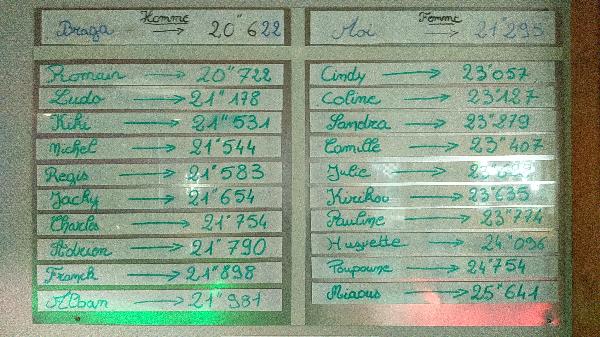 Homme
Braga → 20"622
Romain → 20"722
Ludo → 21"178
Kiki → 21"531
Michel → 21"544
Regis → 21"583
Jacky → 21"654
Charles → 21"754
Adrien → 21"790
Franck → 21"898
Alban → 21"981
Femme
Aoi → 21"295
Cindy → 23"057
Coline → 23"127
Sandra → 23"279
Camille → 23"407
Julie →
Kirikou → 23"635
Pauline → 23"774
Husvette → 24"096
Poupoune → 24"754
Miaous → 25"641